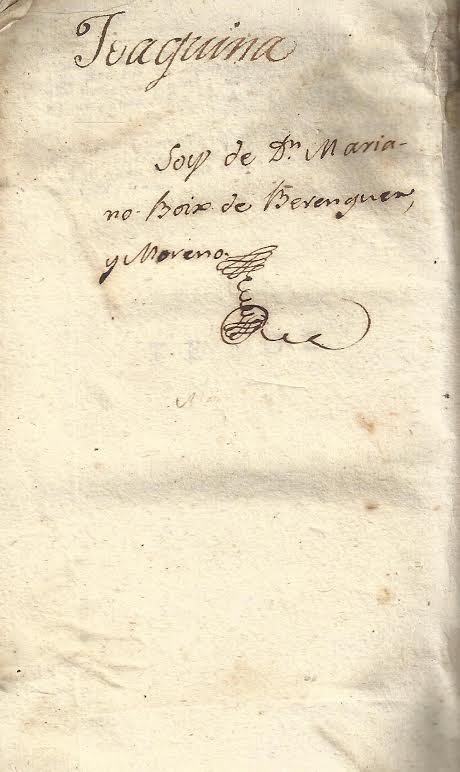 Joaquina
Soy de Dn. Maria-
no Boix de Berenguer,
y Moreno.